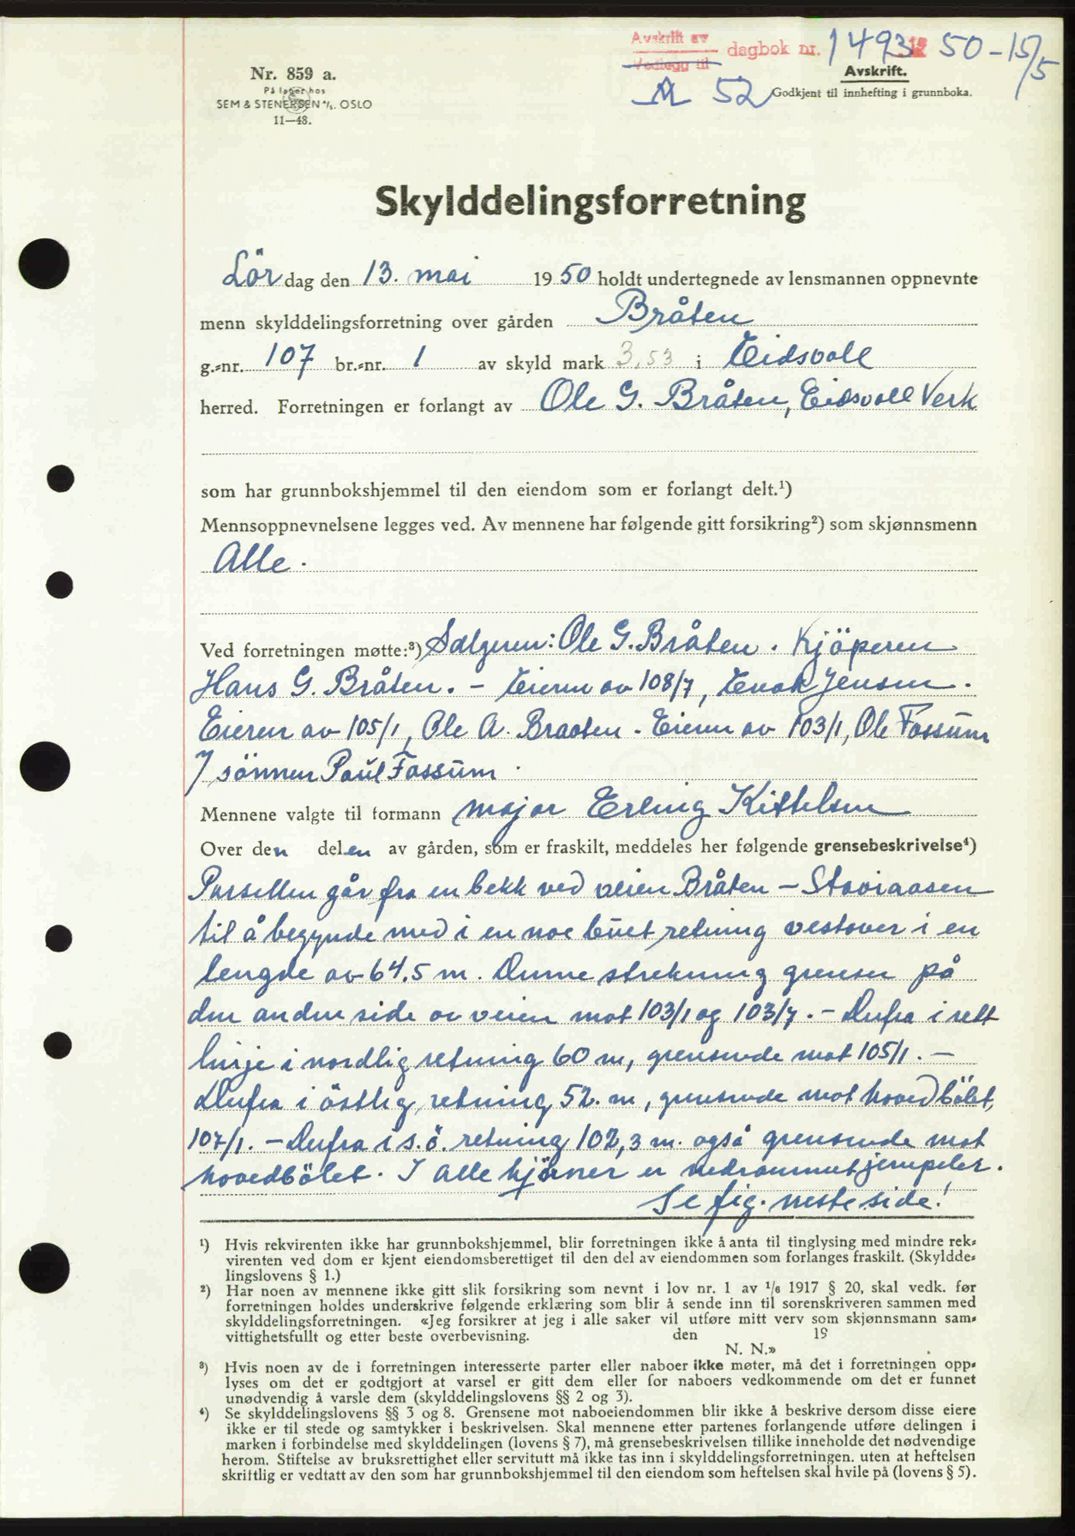 Avskrift av
Vedlegg til
dagbok nr. 1493 50-15/5
A 52
Avskrift.
Godkjent til innhefting i grunnboka.
Nr. 859 a.
På lager hos
SEM & STENERSEN A/S. OSLO
11—48.
Skylddelingsforretning
Lördag den 13. mai 1950 holdt undertegnede av lensmannen oppnevnte
menn skylddelingsforretning over gården Bråten
g.-nr. 107 br.-nr. 1 av skyld mark 3.53 i Eidsvoll
herred. Forretningen er forlangt av Ole G. Bråten, Eidsvoll Verk
som har grunnbokshjemmel til den eiendom som er forlangt delt.¹)
Mennsoppnevnelsene legges ved. Av mennene har følgende gitt forsikring²) som skjønnsmenn
Alle.
Ved forretningen møtte:³) Selgeren: Ole G. Bråten. Kjöperen
Hans G. Bråten. - Eieren av 108/7, Enok Jensen.
Eieren av 105/1, Ole A. Braaten. Eieren av 103/1, Ole Fossum
v/ sönnen Paul Fossum.
Mennene valgte til formann major Erling Kittelsen
Over den delen av gården, som er fraskilt, meddeles her følgende grensebeskrivelse⁴)
Parsellen går fra en bekk ved veien Bråten - Staviaasen
til å begynde med i en noe buet retning vestover i en
lengde av 64.5 m. Denne strekning grenser på
den andre side av veien mot 103/1 og 103/7. - Derfra i rett
linje i nordlig retning 60 m, grensende mot 105/1. -
Derfra i östlig retning 52. m, grensende mot hovedbölet,
107/1. - Derfra i s.ö. retning 102,3 m. også grensende mot
hovedbölet. I alle hjörner er nedrammet jernpeler.
Se fig. neste side!
¹) Hvis rekvirenten ikke har grunnbokshjemmel, blir forretningen ikke å anta til tinglysing med mindre rek-
virenten ved dom er kjent eiendomsberettiget til den del av eiendommen som forlanges fraskilt. (Skyldde-
lingslovens § 1.)
²) Har noen av mennene ikke gitt slik forsikring som nevnt i lov nr. 1 av ¹/₆ 1917 § 20, skal vedk. før
forretningen holdes underskrive følgende erklæring som blir å sende inn til sorenskriveren sammen med
skylddelingsforretningen. «Jeg forsikrer at jeg i alle saker vil utføre mitt verv som skjønnsmann sam-
vittighetsfullt og etter beste overbevisning. den 19
N. N.»
³) Hvis noen av de i forretningen interesserte parter eller naboer ikke møter, må det i forretningen opp-
lyses om det er godtgjort at varsel er gitt dem eller for naboers vedkommende om det er funnet
unødvendig å varsle dem (skylddelingslovens §§ 2 og 3).
⁴) Se skylddelingslovens §§ 3 og 8. Grensene mot naboeiendommen blir ikke å beskrive dersom disse eiere
ikke er til stede og samtykker i beskrivelsen. Skal mennene etter partenes forlangende utføre delingen i
marken i forbindelse med skylddelingen (lovens § 7), må grensebeskrivelsen tillike inneholde det nødvendige
herom. Stiftelse av bruksrettighet eller servitutt må ikke tas inn i skylddelingsforretningen. uten at heftelsen
skriftlig er vedtatt av den som har grunnbokshjemmel til den eiendom som heftelsen skal hvile på (lovens § 5).